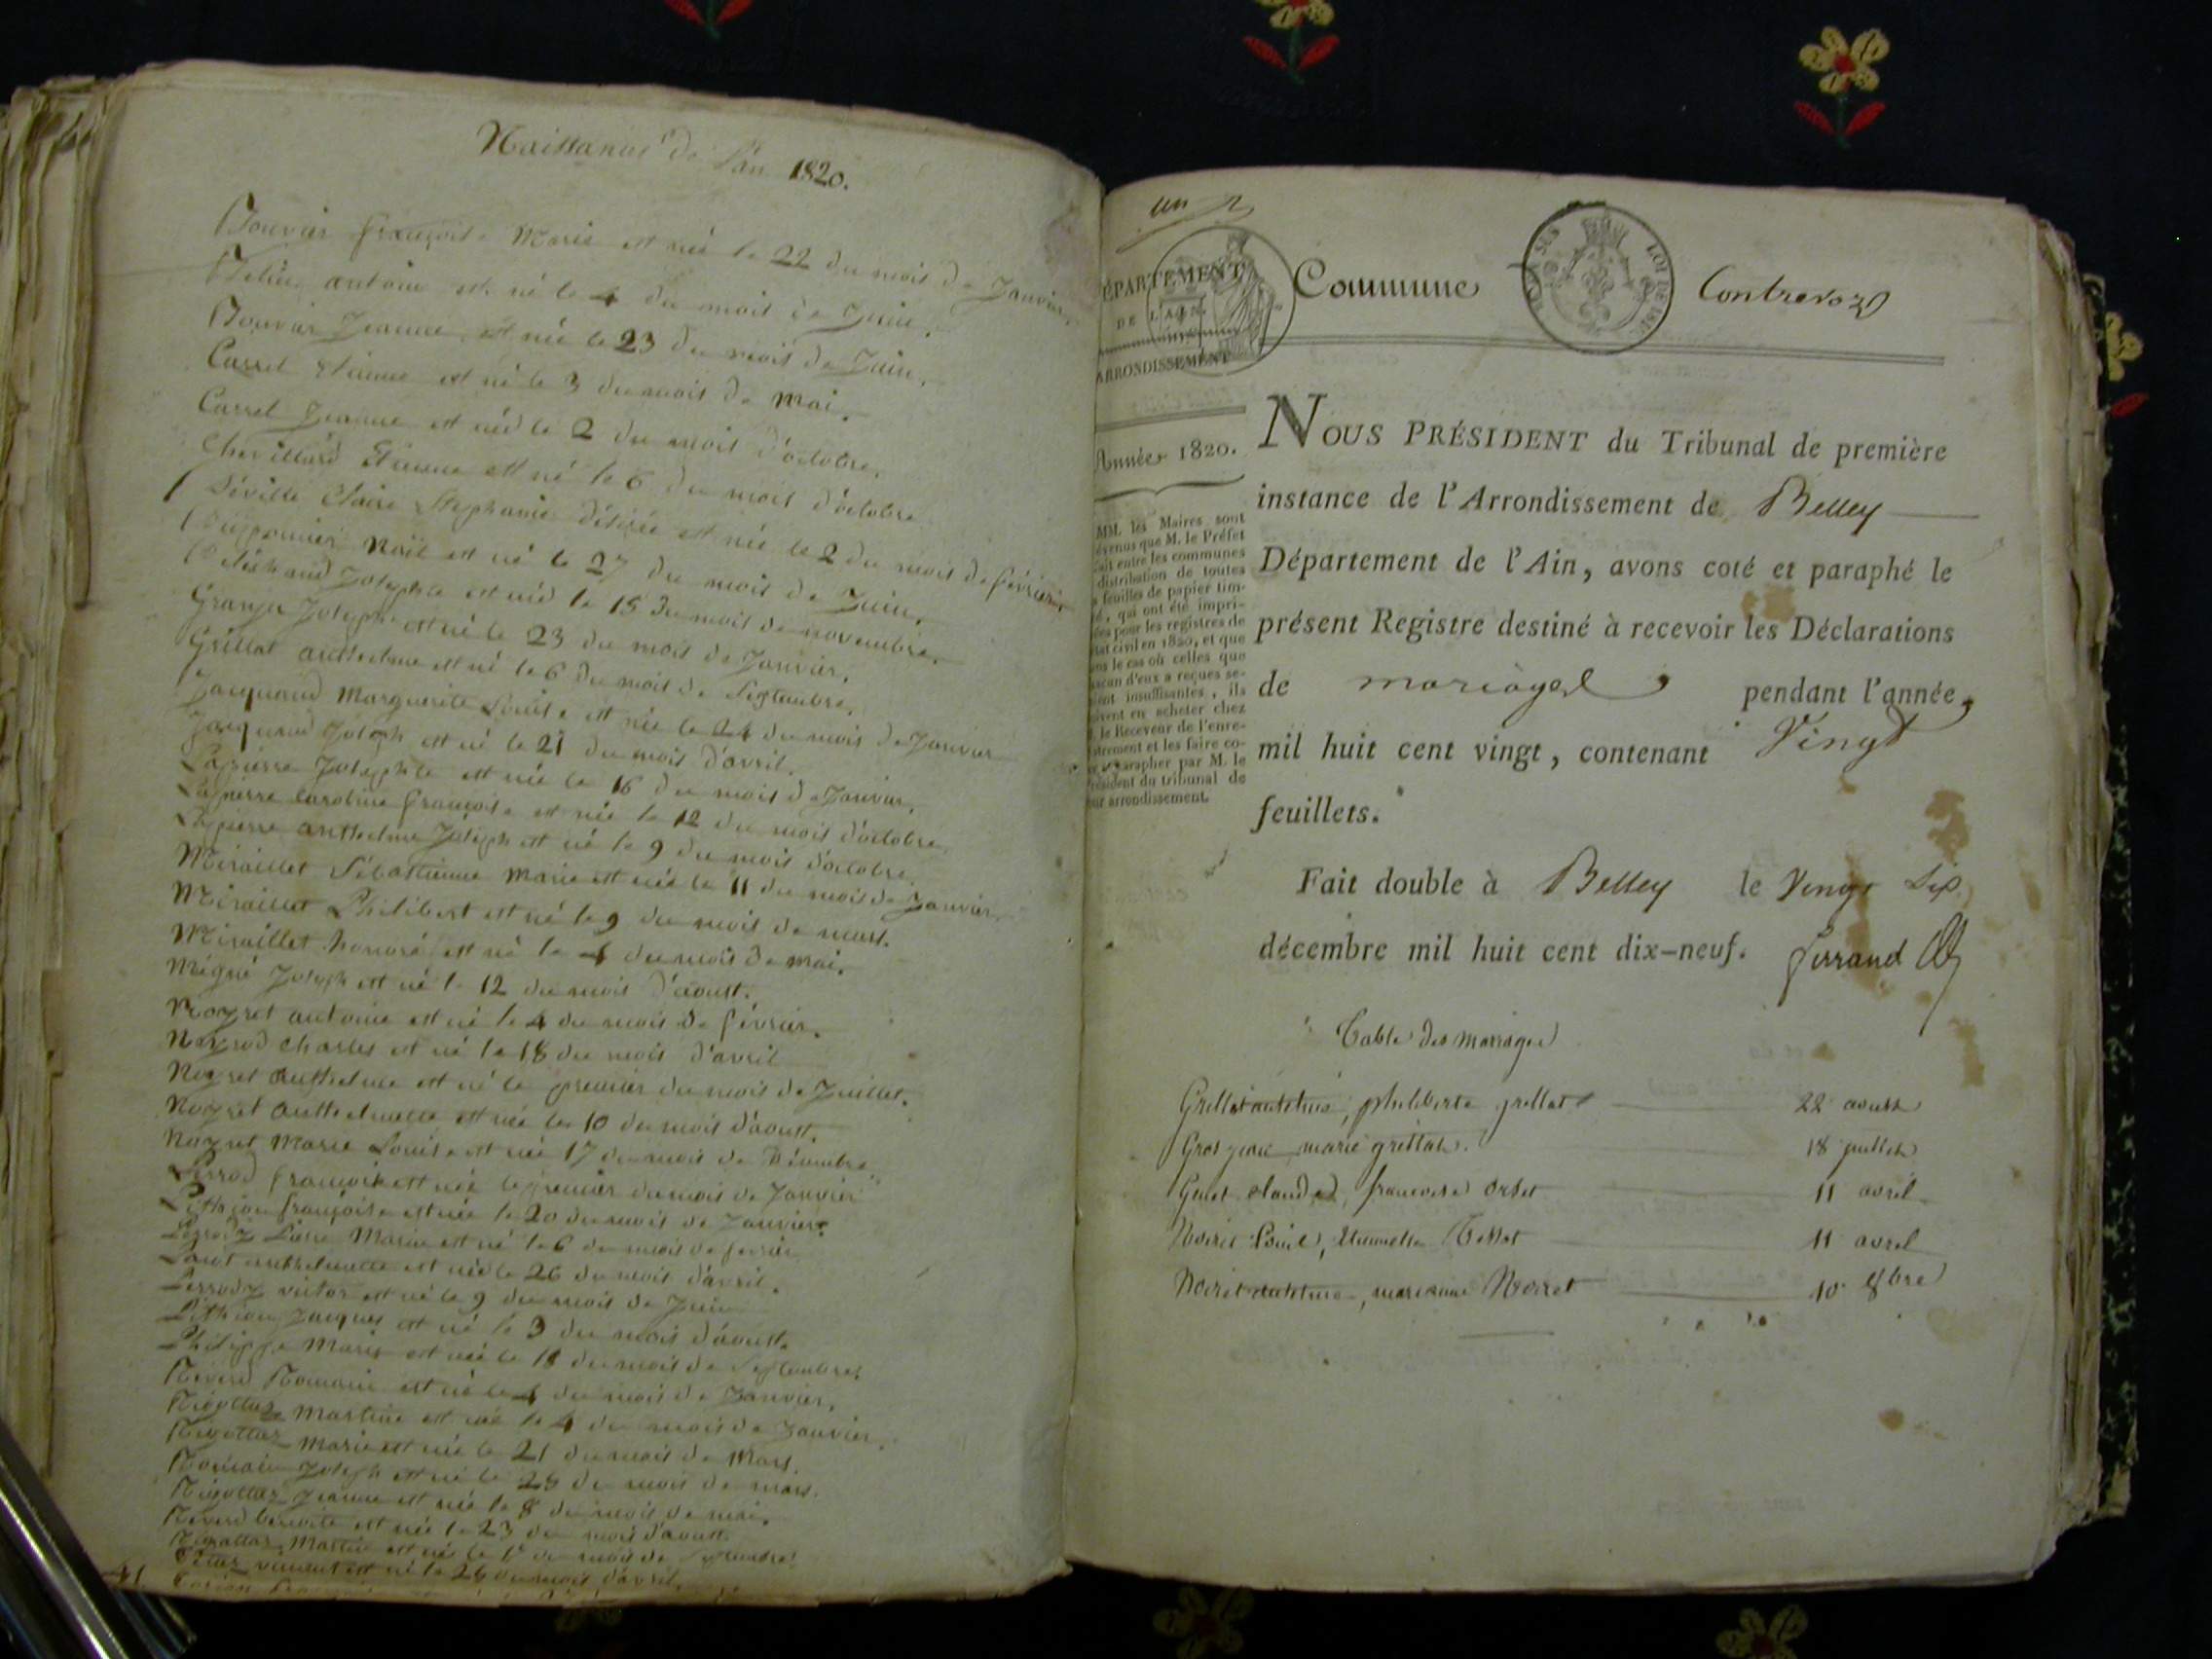 Naissances de L'an 1820.
Bouvier françoise Marie est née le 22 du mois de Janvier.
antoine est né le 4 du mois de Juin.
Bouvier Jeanne est née le 23 du mois de Juin.
Carrel Etienne est né le 3 du mois de Mai.
Carrel Jeanne est née le 2 du mois d'octobre.
Chevillard Etienne est né le 6 du mois d'octobre
Déville Claire Stéphanie désirée est née le 2 du mois de février.
Noël est né le 27 du mois de Juin.
Josephte est née le 15 du mois de novembre.
Granjer Joseph est né le 23 du mois de Janvier.
Grillot anthelme est né le 6 du mois de Septembre.
Jacquand Marguerite Louise est née le 24 du mois de Janvier
Jacquand Joseph est né le 21 du mois d'avril.
Lapierre Josephte est née le 16 du mois de Janvier.
Lapierre Caroline françoise est née le 12 du mois d'octobre
Lapierre anthelme Joseph est né le 9 du mois d'octobre.
Miraillet Sébastienne Marie est née le 11 du mois de Janvier.
Miraillet Philibert est né le 9 du mois de mars.
Miraillet honoré est né le 4 du mois de mai.
Mégné Joseph est né le 12 du mois d'aoust.
Noyret antoine est né le 4 du mois de février.
Neyrod Charles est né le 18 du mois d'avril
Noyret Anthelme est né le premier du mois de Juillet.
Noyret Anthelmette est née le 10 du mois d'aoust.
Noyret Marie Louise est née 17 du mois de Décembre
Perrod françoise est née le premier du mois de Janvier
Pithion françoise est née le 20 du mois de Janvier.
Pierre Marie est né le 6 du mois de fevrier
anthelmette est née le 26 du mois d'avril.
Perrodz victor est né le 9 du mois de Juin
Pithion Jacques est né le 3 du mois d'aoust.
Philippe Marie est née le 18 du mois de Septembre.
Reverd Romain est né le 4 du mois de Janvier.
Rigottaz Martine est née le 4 du mois de Janvier.
Rigottaz Marie est née le 21 du mois de Mars.
Romain Joseph est né le 28 du mois de mars.
Rigottaz Jeanne est née le 8 du mois de mai.
Reverd benoite est née le 23 du mois d'aoust.
Rigottaz Martin est né le 1er du mois de Septembre.
vincent est né le 26 du mois d'avril.
41
un
DÉPARTEMENT
DE L'AIN.
ARRONDISSEMENT
Commune
Contrevoz
Année 1820.
MM. les Maires sont
prévenus que M. le Préfet
fait entre les communes
distribution de toutes
feuilles de papier tim-
bré, qui ont été impri-
mées pour les registres de
l'état civil en 1820, et que
dans le cas où celles que
chacun d'eux a reçues se-
raient insuffisantes, ils
doivent en acheter chez
M. le Receveur de l'enre-
gistrement et les faire co-
ter et parapher par M. le
Président du tribunal de
leur arrondissement.
NOUS PRÉSIDENT du Tribunal de première
instance de l'Arrondissement de Belley
Département de l'Ain, avons coté et paraphé le
présent Registre destiné à recevoir les Déclarations
de mariages pendant l'année
mil huit cent vingt, contenant Vingt
feuillets.
Fait double à Belley le Vingt Six
décembre mil huit cent dix-neuf. ferrand
Table des mariages
Grillot anthelme, philiberte grillot 22 aoust
Gros jean marie grillat. 18 juillet
Guiet claude, francoise orset 11 avril
Noiret Louis, 11 avril
Noiret anthelme, marianne Noiret 10 8bre